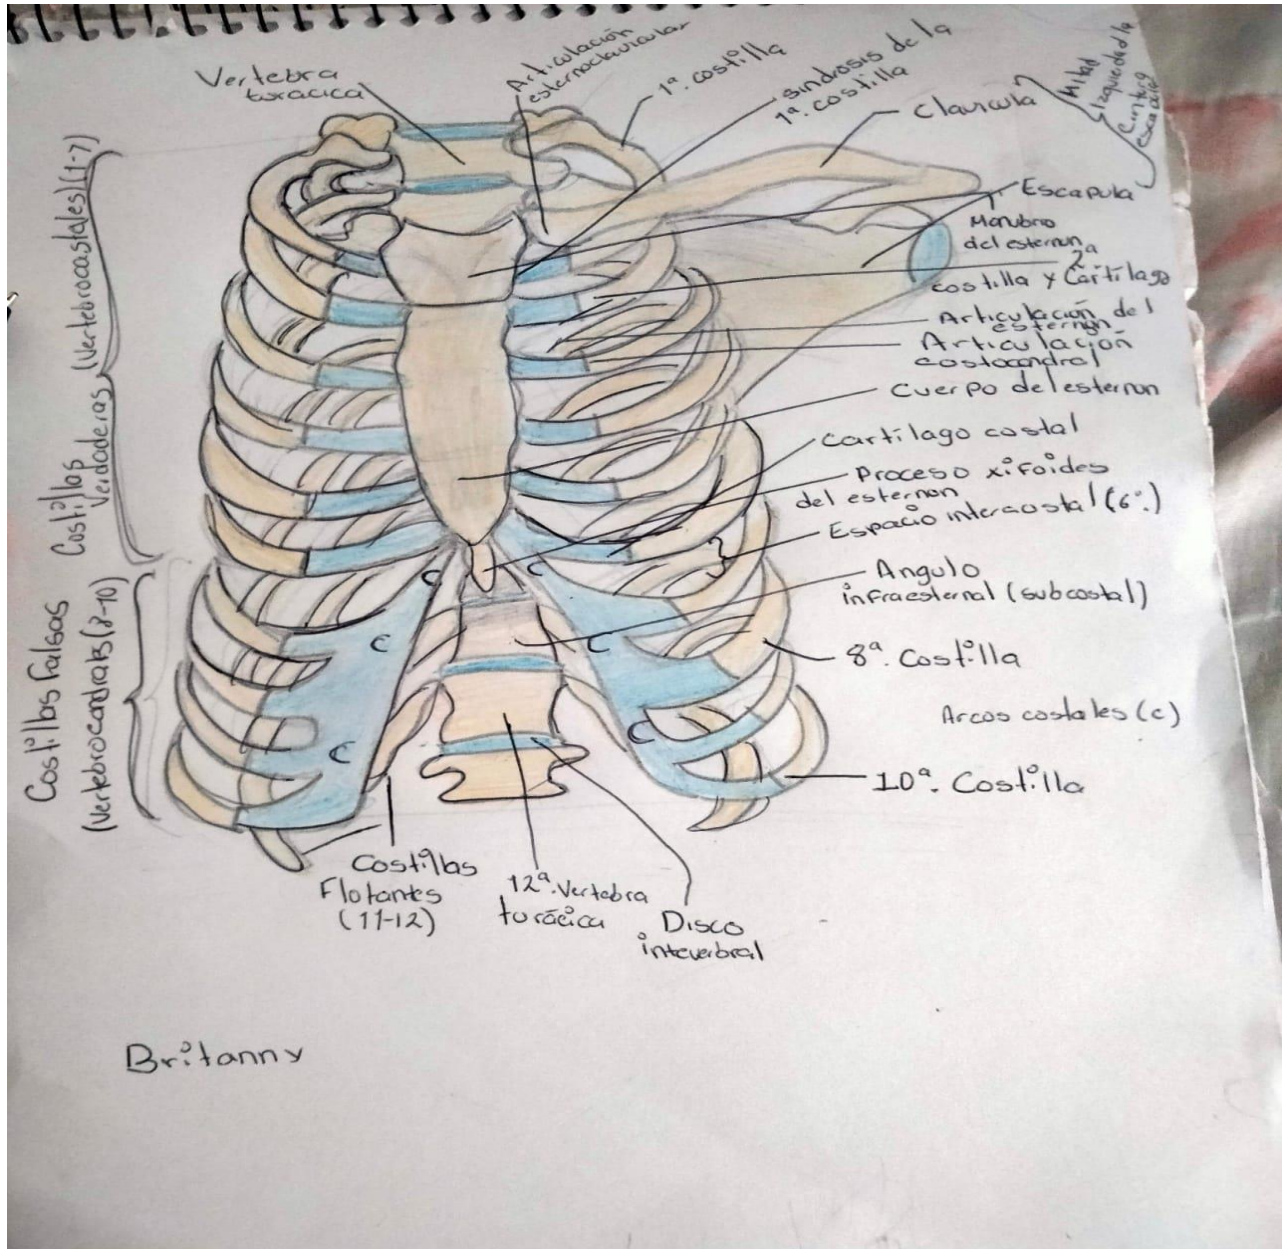 Vertebra
toracica
Articulación
esternoclavicular
1ª. costilla
sindrosis de la
1ª. costilla
Clavicula
Mitad
Izquieda d la
Cintura
escapular
Escapula
Manubrio
del esternon
2ª
costilla y Cartílago
Articulación del
esternón
Articulación
costocondral
Cuerpo del esternon
Cartílago costal
Proceso xifoides
del esternon
Espacio intercostal (6º.)
Angulo
infraesternal (subcostal)
8ª. Costilla
Arcos costales (c)
10ª. Costilla
Costillas
Verdaderas (Vertebrocostales) (1-7)
Costillas Falsas
(vertebrocondrals (8-10)
C
C
C
C
C
C
Costillas
Flotantes
(11-12)
12ª. Vertebra
torácica
Disco
inteverbral
Britanny